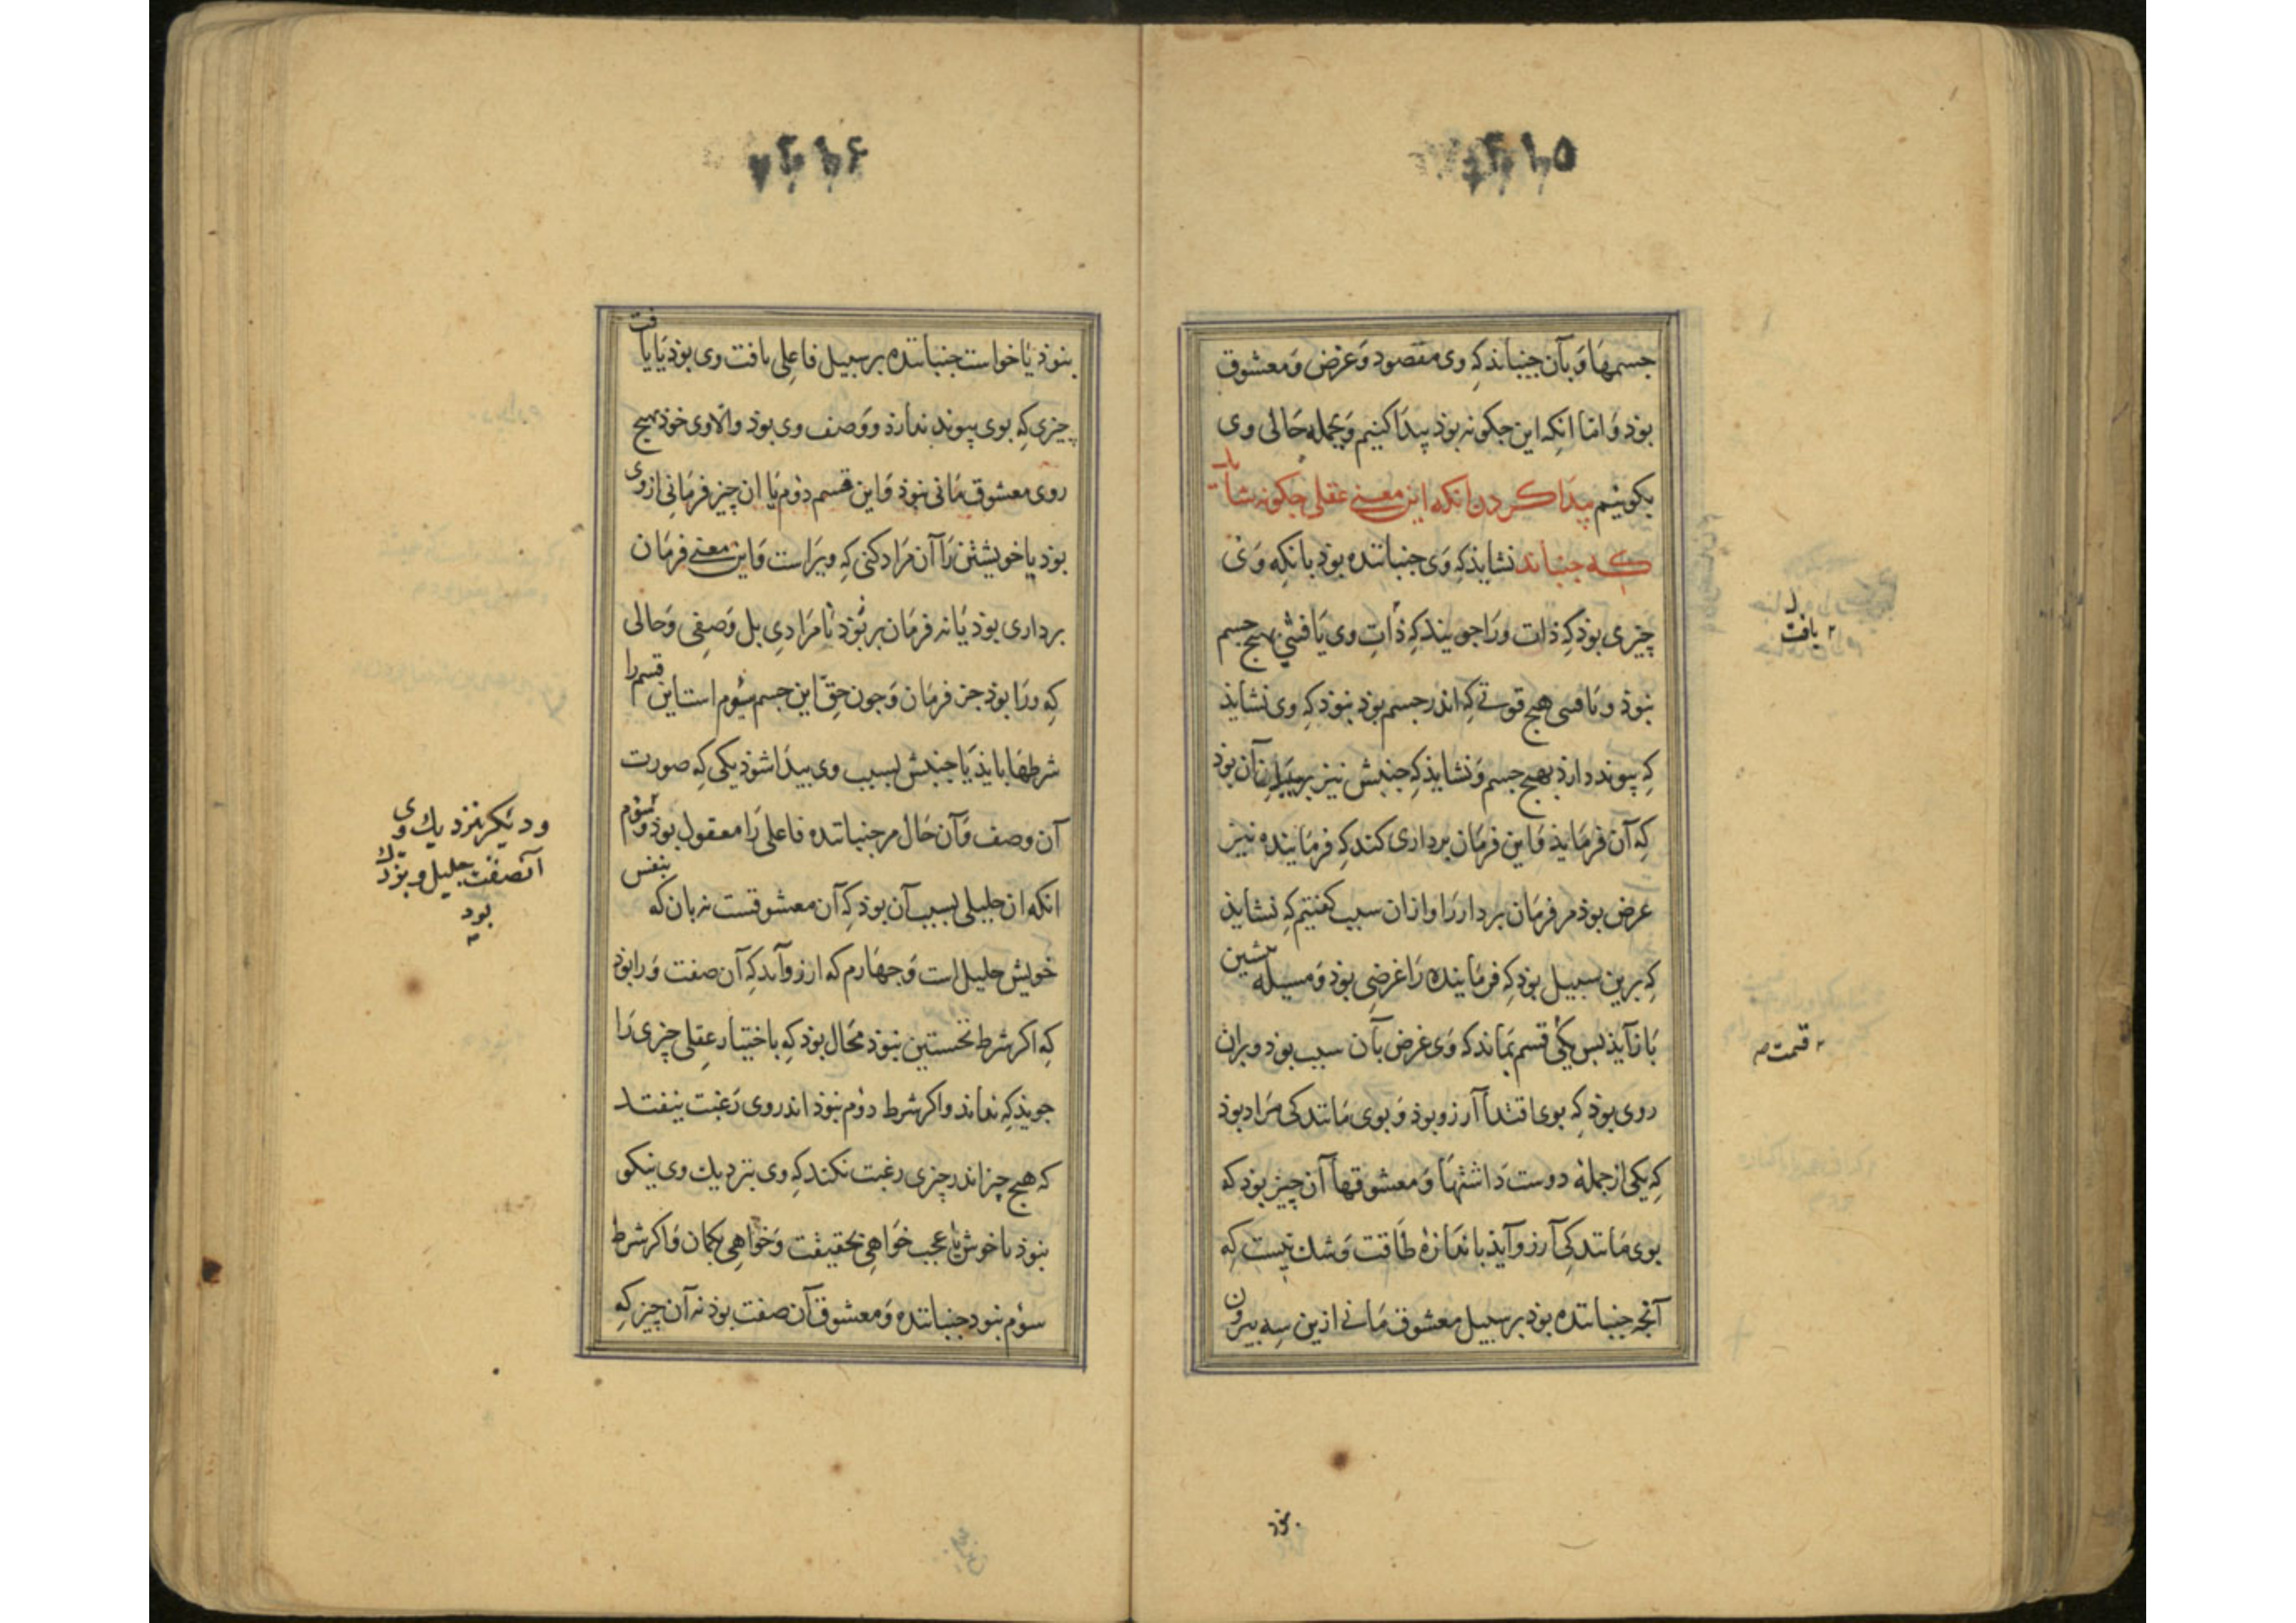 ۲۱۵
جسمها وَ بآن جنباند کِه وی مقصود وَ غرض وَ معشوق
بوذ وَ امّا انکه این جکونه بوذ پیدا کنیم وَ بجمله حَالی وی
بکوئیم پیدا کردن انکه این معنی عقلی جکونه شاید
که جنباند نشایذ کِه وَی جنباننده بوذ بانکه وَی
چیزی بوذ کِه ذات ورَا جویند کِه ذاتِ وی یَافتنی بهیج جسم
نبوذ و یافتنی هیج قوتی کِه اندر جسم بوذ نبوذ کِه وی نشایذ
کِه پیوند دارذ بهیج جسم وَ نشایذ کِه جنبش نیز بر آن بوذ
کِه آن فرمَایذ وَ این فرمَان برداری کند کِه فرمَاینده نیز
غرض بوذ مر فرمَان بردار رَا و ازان سبب کفتیم کِه نشایذ
کِه برین سبیل بوذ کِه فرمَاینده رَا غرضِی بوذ وَ مسیله پیشین
بَاز آیذ بس یکی قسم بمَاند که وَی غرض بآن سبب بوذ و بران
روی بوذ کِه بوی اقتدا آرزو بوذ وَ بوی مَانندکی مُرَاد بوذ
کِه یکی از جمله دوست دَاشتنهَا وَ معشوقها آن چیز بوذ که
بوی مَانندکی آرزو آیذ باندَازهٔ طَاقت وَ شک نیست کِه
آنچه جنباننده بوذ بر سبیل معشوق مَانی ازین سِه بیرون
یافت
قسمت
نبوذ
۲۱۶
نبوذ یَا خواست جنباننده بر سبیل فاعِلی یافت وی بوذ یَا یافت
چیزی کِه بوی پیوند ندَارذ و وَصف وی بوذ و الّا وی خوذ بهیج
روی معشوق مَانی نبوذ وَ این قسم دوُم یَا ان چیز فرمَانی از وی
بوذ یا خویشتن رَا آن مُرَاد کنی کِه ویرَاست وَ این معنی فرمَان
برداری بوذ یَا نه فرمَان بر بُوَذ نَه مرَادی بل وَصفی وَ حالی
کِه ورَا بوذ جز فرمَان وَ جون حقّ این جسم سِیُوم است این قسم را
شرطهَا بایذ یَا جنبش بسبب وی پیدَا شوذ یکی کِه صورت
آن وصف وَ آن حَال مر جنباننده فاعلی رَا معقول بوذ و سوم
انکه ان جلیلی بسبب آن بوذ کِه آن معشوقست نه بان که بنفس
خویش جلیل است وَ جهَارم که ارزو آمد کِه آن صفت وَرا بوذ
کِه اکر شرط نخستین نبوذ محَال بوذ کِه باختیار عقلی چیزی رَا
جویذ کِه نداند و اکر شرط دوُم نبوذ اندر وی رَغبت نیفتد
که هیج چیز اندر چیزی رغبت نکند کِه وی نزدیک وی نیکو
نبوذ یا خوش یا عجب خَواهِی بحقیقت وَ خَواهِی بکمان وَ اکر شرط
سوُم نبوذ جنباننده وَ معشوق آن صفت بوذ نه آن چیز کِه
و دیکر نزدیک وی
آنصفت جلیل و بزرک
بود